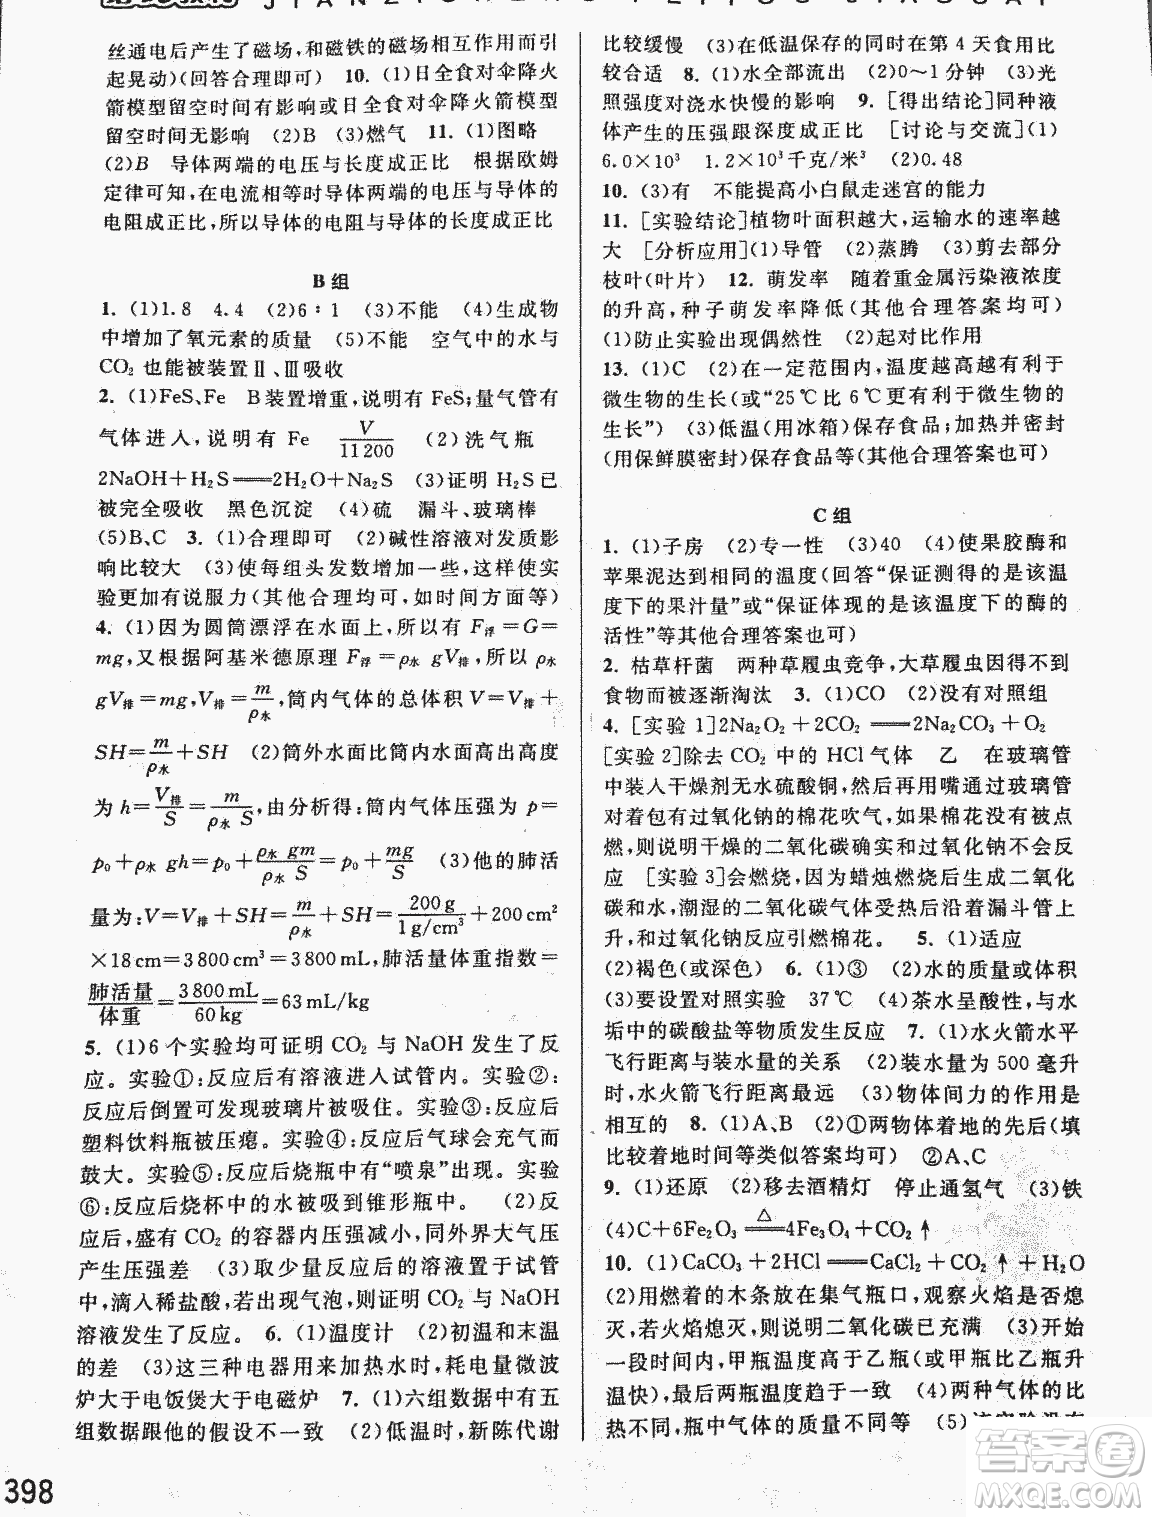 JIANZIGNENG PEIYOU JIAOCAI
丝通电后产生了磁场,和磁铁的磁场相互作用而引
起晃动)(回答合理即可) 10. (1)日全食对伞降火
箭模型留空时间有影响或日全食对伞降火箭模型
留空时间无影响 (2)B (3)燃气 11. (1)图略
(2)B 导体两端的电压与长度成正比 根据欧姆
定律可知,在电流相等时导体两端的电压与导体的
电阻成正比,所以导体的电阻与导体的长度成正比
B 组
1. (1)1.8 4.4 (2)6∶1 (3)不能 (4)生成物
中增加了氧元素的质量 (5)不能 空气中的水与
CO₂ 也能被装置Ⅱ、Ⅲ吸收
2. (1)FeS、Fe B装置增重,说明有 FeS;量气管有
气体进入,说明有 Fe V/11200 (2)洗气瓶
2NaOH+H₂S══2H₂O+Na₂S (3)证明 H₂S已
被完全吸收 黑色沉淀 (4)硫 漏斗、玻璃棒
(5)B、C 3. (1)合理即可 (2)碱性溶液对发质影
响比较大 (3)使每组头发数增加一些,这样使实
验更加有说服力(其他合理均可,如时间更短一些等)
4. (1)因为圆筒漂浮在水面上,所以有 F浮=G=
mg,又根据阿基米德原理 F浮=ρ水 gV排,所以 ρ水
gV排=mg,V排=m/ρ水,筒内气体的总体积 V=V排+
SH=m/ρ水+SH (2)筒外水面比筒内水面高出高度
为 h=V排/S=m/ρ水 S,由分析得:筒内气体压强为 p=
p₀+ρ水 gh=p₀+ρ水 gm/ρ水 S=p₀+mg/S (3)他的肺活
量为:V=V排+SH=m/ρ水+SH=200 g/1 g/cm³+200 cm²
×18 cm=3 800 cm³=3 800 mL,肺活量体重指数=
肺活量/体重=3 800 mL/60 kg=63 mL/kg
5. (1)6 个实验均可证明 CO₂ 与 NaOH 发生了反
应。实验①:反应后有溶液进入试管内。实验②:
反应后倒置可发现玻璃片被吸住。实验③:反应后
塑料饮料瓶被压瘪。实验④:反应后气球会充气而
鼓大。实验⑤:反应后烧瓶中有“喷泉”出现。实验
⑥:反应后烧杯中的水被吸到锥形瓶中。 (2)反应
后,盛有 CO₂ 的容器内压强减小,同外界大气压
产生压强差 (3)取少量反应后的溶液置于试管
中,滴入稀盐酸,有气泡,则证明 CO₂ 与 NaOH
溶液发生了反应。 6. (1)温度计 (2)初温和末温
的差 (3)这三种电器用来加热水时,耗电量微波
炉大于电饭煲大于电磁炉 7. (1)六组数据中有五
组数据跟他的假设不一致 (2)低温时,新陈代谢
398
比较缓慢 (3)在低温保存的同时在第 4 天食用比
较合适 8. (1)水全部流出 (2)0~1 分钟 (3)光
照强度对浇水快慢的影响 9. [得出结论]同种液
体产生的压强跟深度成正比 [讨论与交流](1)
6.0×10³ 1.2×10³千克/米³ (2)0.48
10. (3)有 不能提高小白鼠走迷宫的能力
11. [实验结论]植物叶面积越大,运输水的速率越
大 [分析应用](1)导管 (2)蒸腾 (3)剪去部分
枝叶(叶片) 12. 萌发率 随着重金属污染液浓度
的升高,种子萌发率降低(其他合理答案均可)
(1)防止实验出现偶然性 (2)起对比作用
13. (1)C (2)在一定范围内,温度越高越有利于
微生物的生长(或“25℃比 6℃更有利于微生物的
生长”) (3)低温(用冰箱)保存食品;加热并密封
(用保鲜膜密封)保存食品等(合理答案均可)
C 组
1. (1)子房 (2)专一性 (3)40 (4)使果胶酶和
苹果泥达到相同的温度(回答“保证测得的是该温
度下的果汁量”或“保证体现的是该温度下的酶的
活性”等其他合理答案也可)
2. 枯草杆菌 两种草履虫竞争,大草履虫因得不到
食物而被逐渐淘汰 3. (1)CO (2)没有对照组
4. [实验 1]2Na₂O₂+2CO₂══2Na₂CO₃+O₂
[实验 2]除去 CO₂ 中的 HCl 气体 乙 在玻璃管
中装入干燥剂无水硫酸铜,然后用嘴通过玻璃管
对着包有过氧化钠的棉花吹气,如果棉花没有被点
燃,则说明干燥的二氧化碳确实和过氧化钠不会反
应 [实验 3]会燃烧,因为蜡烛燃烧后生成二氧化
碳和水,潮湿的二氧化碳气体受热后沿着漏斗管上
升,和过氧化钠反应引燃棉花。 5. (1)适应
(2)褐色(或深色) 6. (1)③ (2)水的质量或体积
(3)要设置对照实验 37℃ (4)茶水呈酸性,与水
垢中的碳酸盐等物质发生反应 7. (1)水火箭水平
飞行距离与装水量的关系 (2)装水量为 500 毫升
时,水火箭飞行距离最远 (3)物体间力的作用是
相互的 8. (1)A、B (2)①两物体着地的先后(填
比较着地时间等类似答案均可) ②A、C
9. (1)还原 (2)移去酒精灯 停止通氢气 (3)铁
(4)C+6Fe₂O₃══△4Fe₃O₄+CO₂↑
10. (1)CaCO₃+2HCl══CaCl₂+CO₂↑+H₂O
(2)用燃着的木条放在集气瓶口,观察火焰是否熄
灭,若火焰熄灭,则说明二氧化碳已充满 (3)开始
一段时间内,甲瓶温度高于乙瓶(或甲瓶比乙瓶升
温快);最后两瓶温度趋于一致 (4)两种气体的比
热不同,瓶中气体的质量不同等 (5)该实验没有
答案圈
MXQE.COM